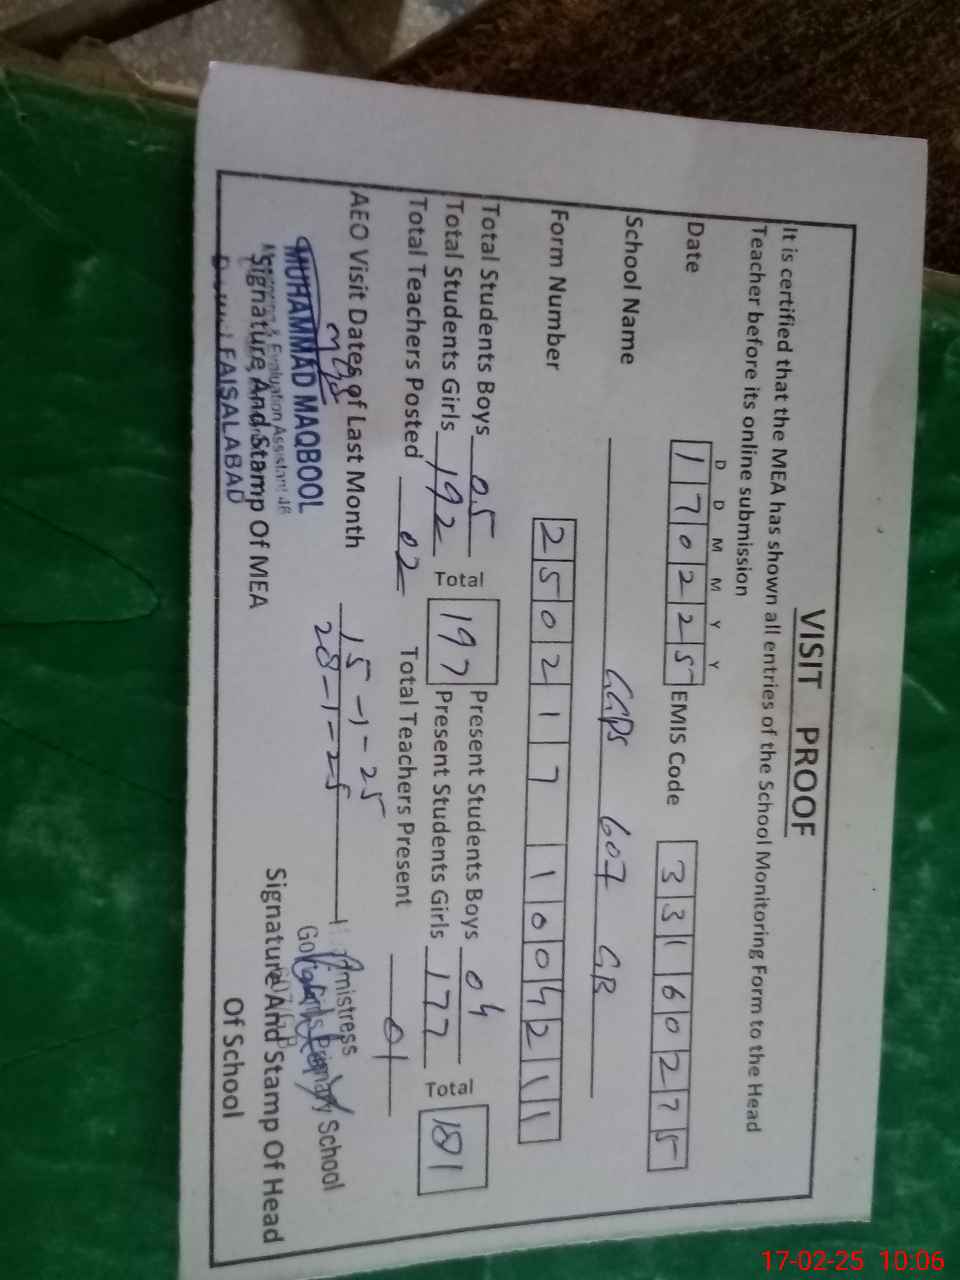 VISIT PROOF
It is certified that the MEA has shown all entries of the School Monitoring Form to the Head
Teacher before its online submission
D D M M Y Y
Date 170225 EMIS Code 33160275
School Name GGPS 607 GB
Form Number 250217 1004211
Total Students Boys 05 Total 197 Present Students Boys 04 Total 181
Total Students Girls 192 Present Students Girls 177
Total Teachers Posted 02 Total Teachers Present 01
AEO Visit Dates of Last Month 15-1-25
28-1-25
MUHAMMAD MAQBOOL
Monitoring & Evaluation Assistant
Signature And Stamp Of MEA
FAISALABAD
Primary School
Signature And Stamp Of Head
Of School
17-02-25 10:06